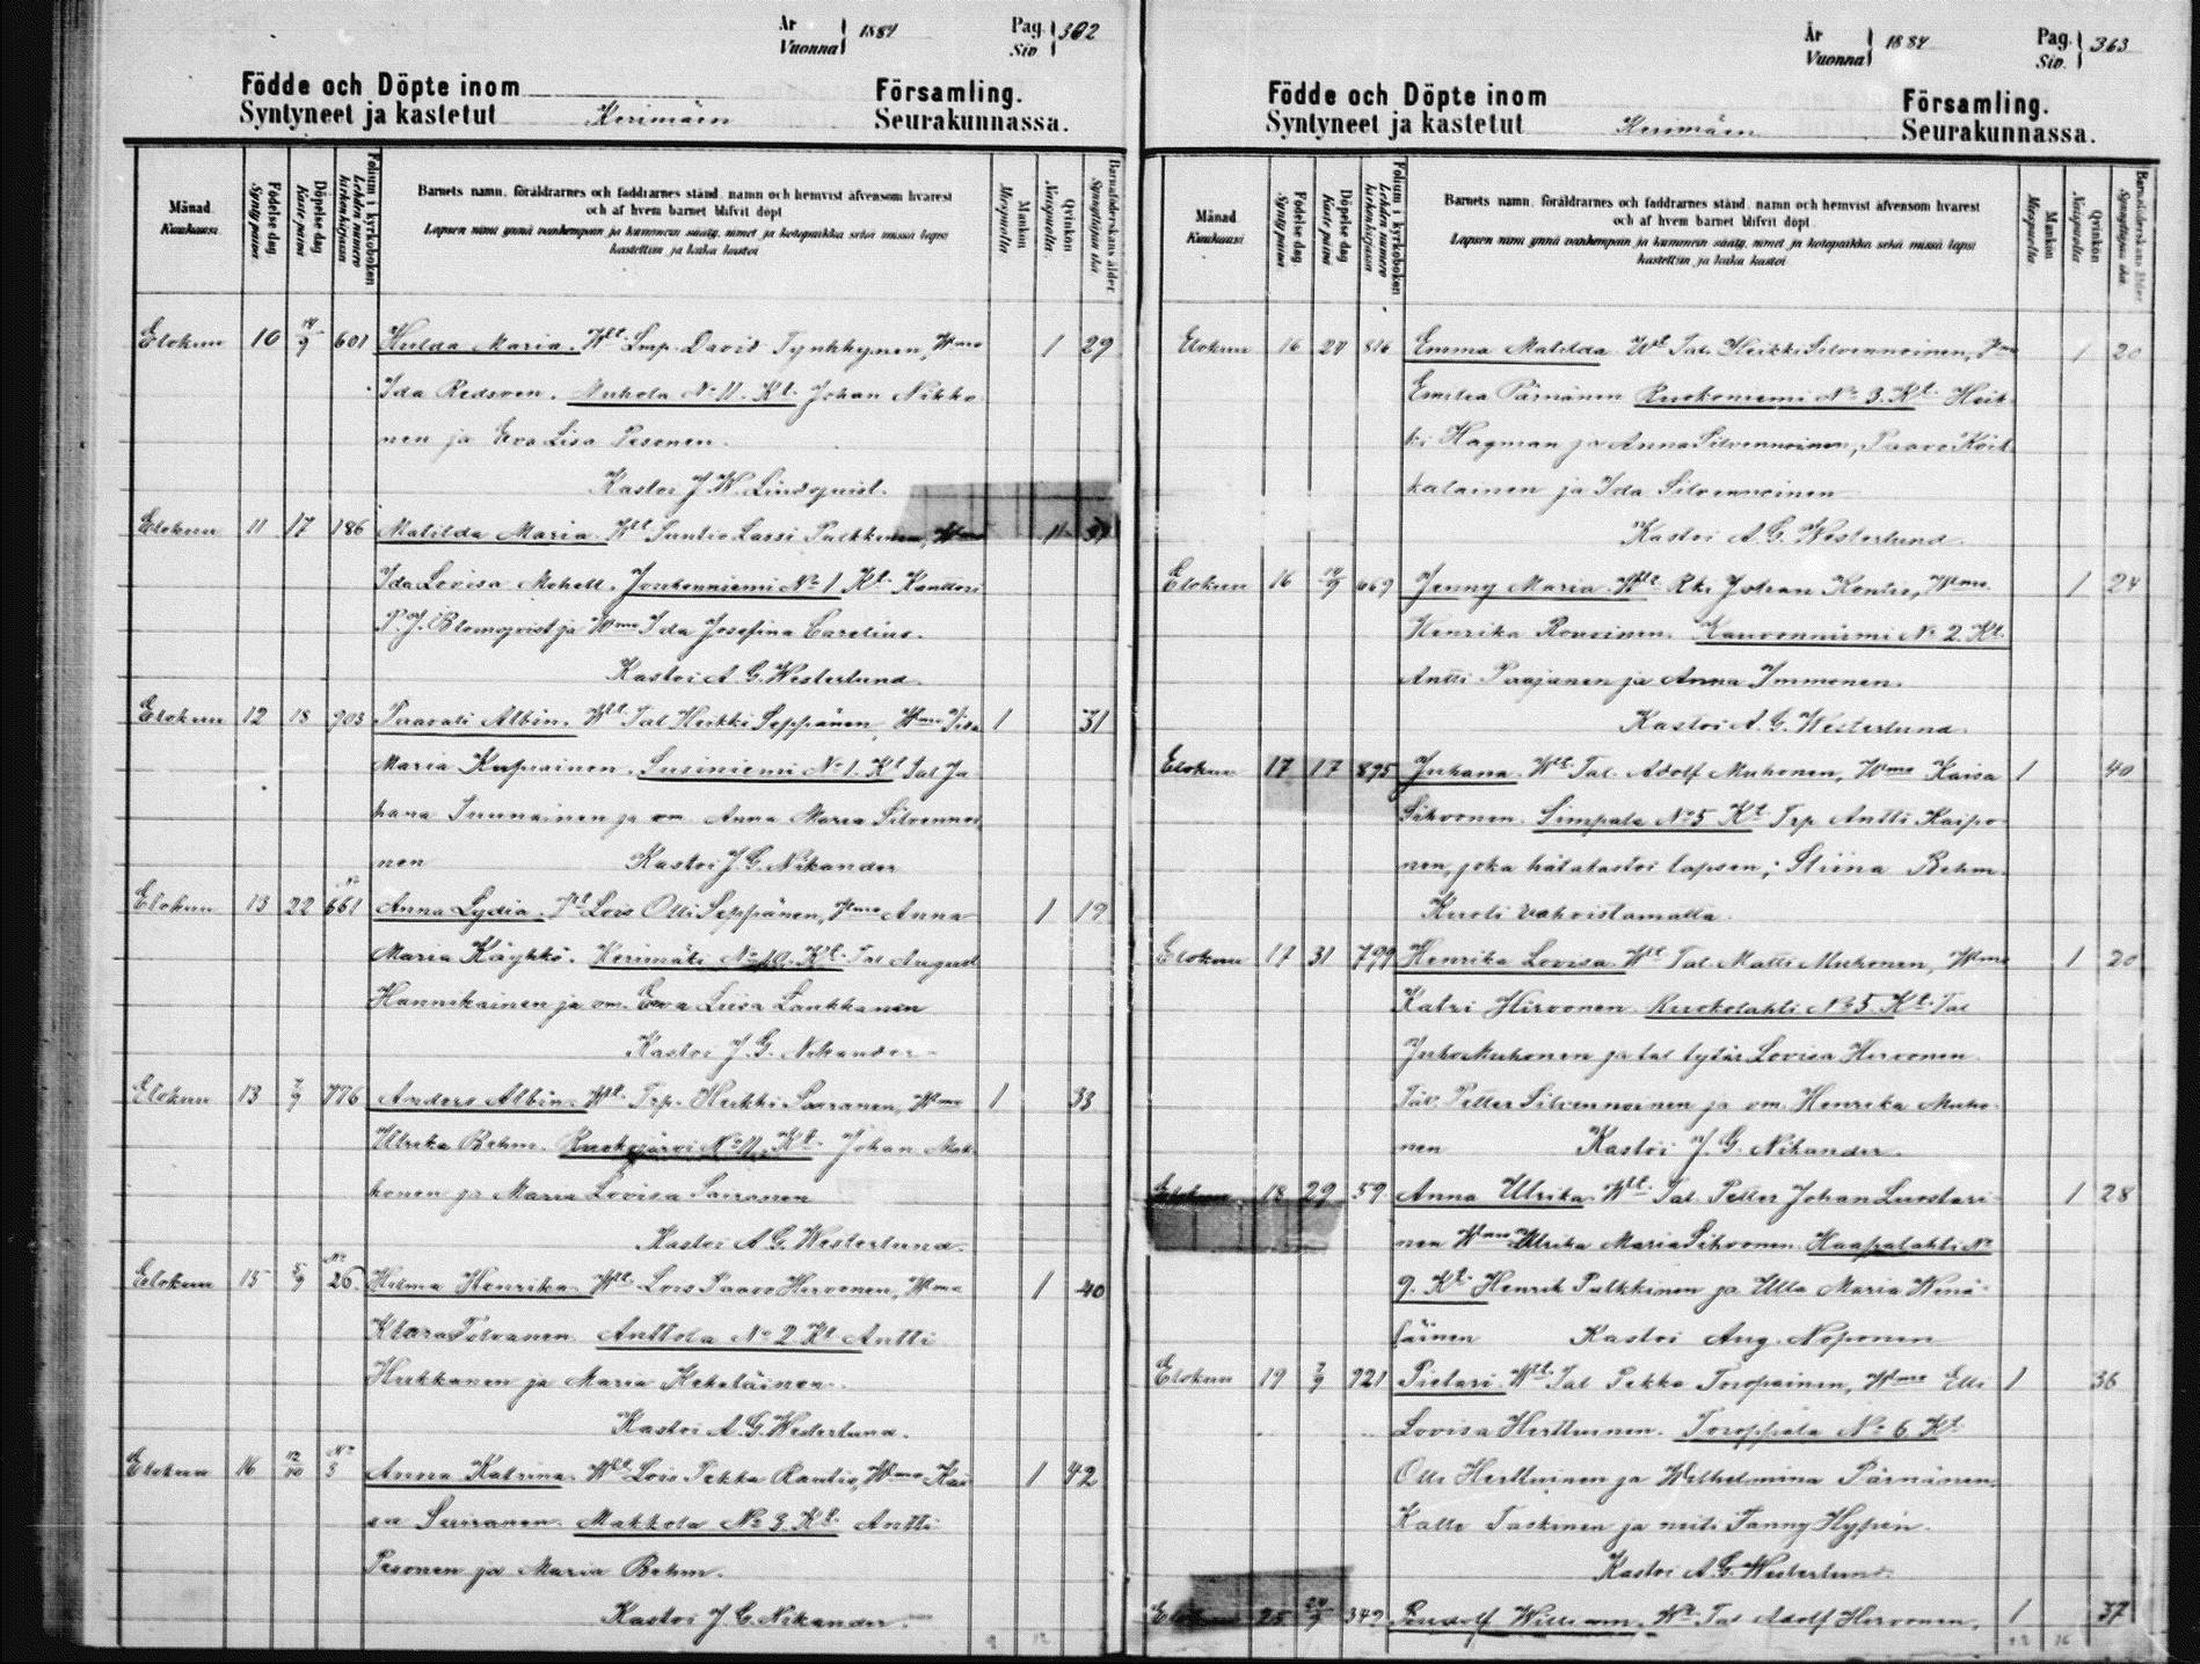 År Vuonna 1884 Pag. Siv. 362
Födde och Döpte inom Församling.
Syntyneet ja kastetut Kerimäen Seurakunnassa.
Månad Kuukausi
Födelse dag Synty päivä
Döpelse dag Kaste päivä
Folium i kyrkoboken Lehden numero kirkonkirjaan
Barnets namn, föräldrarnes och faddrarnes stånd, namn och hemvist äfvensom hvarest
och af hvem barnet blifvit döpt
Lapsen nimi ynnä vanhempain ja kummein sääty, nimet ja kotopaikka sekä missä lapsi
kastettiin ja kuka kastoi
Mankön Miespuolia
Qvinkön Naispuolia
Barnaföderskans ålder Synnyttäjän ikä
Elokuu 10 14/9 601 Hulda Maria. Wht Lmp. David Tynkkynen, Wmo 1 29
Ida Redsven. Muhola No 11. Kt. Johan Nikko
nen ja Eva Lisa Pesonen.
Kastoi J. W. Lindqvist.
Elokuu 11 17 186 Matilda Maria Wht Suntio Lassi Pulkkinen, Wmo 1
Ida Lovisa Mohell. Jouhenniemi No 1 Kt. Kanttori
P. J. Blomqvist ja Wmo Ida Josefina Carelius.
Kastoi A. G. Westerlund.
Elokuu 12 18 903 Paavali Albin. Wht Tal Heikki Seppänen, Wmo 1 31
Maria Kupiainen. Susiniemi No 1. Kt Tal Ju
hana Immainen ja vm Anna Maria Silvennoi
nen Kastoi J. G. Nikander
Elokuu 13 22 No 661 Anna Lydia. Lois Olli Seppänen, Anna 1 19
Maria Käyhkö. Kerimäki No 10. Kt. Tal August
Hannikainen ja vm. Eva Liisa Laukkanen
Kastoi J. G. Nikander
Elokuu 13 7/9 776 Anders Albin Wht Trp. Heikki Saxanen, Wmo 1 33
Ulrika Behm. Ruokojärvi No 11. Kt. Johan Muh
honen ja Maria Lovisa
Kastoi A. G. Westerlund.
Elokuu 15 5/9 No 26 Hilma Henrika Wht Lois Paavo Hirvonen, Wmo 1 40
Klara Tolvanen. Anttola No 2 Kt Antti
Hukkanen ja Maria Keteläinen.
Kastoi A. G. Westerlund.
Elokuu 16 12/10 No 3 Anna Katrina. Wht Lois Pekka Rantio, Wmo Kai 1 42
sa Suiranen. Makkola No 3. Kt. Antti
Pesonen ja Maria Behm.
Kastoi J. G. Nikander.
9 12
År Vuonna 1884 Pag. Siv. 363
Födde och Döpte inom Församling.
Syntyneet ja kastetut Kerimäen Seurakunnassa.
Månad Kuukausi
Födelse dag Synty päivä
Döpelse dag Kaste päivä
Folium i kyrkoboken Lehden numero kirkonkirjaan
Barnets namn, föräldrarnes och faddrarnes stånd, namn och hemvist äfvensom hvarest
och af hvem barnet blifvit döpt
Lapsen nimi ynnä vanhempain ja kummein sääty, nimet ja kotopaikka sekä missä lapsi
kastettiin ja kuka kastoi
Mankön Miespuolia
Qvinkön Naispuolia
Barnaföderskans ålder Synnyttäjän ikä
Elokuu 16 24 816 Emma Matilda Wt Tal. Heikki Silvennoinen, 1 20
Emilia Pärnänen Ruokoniemi No 3. Kt. Heik
ki Hagman ja Anna Silvennoinen, Paavo Koik
kalainen ja Ida Silvennoinen
Kastoi A. G. Westerlund.
Elokuu 16 14/9 669 Jenny Maria Wht Rk. Johan Kontio, Wmo 1 24
Henrika Rousinen. Kauvonniemi No 2. Kt.
Antti Paajanen ja Anna Immonen.
Kastoi A. G. Westerlund.
Elokuu 17 17 895 Juhana. Wht Tal. Adolf Muhonen, Wmo Kaisa 1 40
Sihvonen. Simpala No 5 Kt. Trp Antti Kaipo
nen, joka hätäkastoi lapsen; Stiina Behm.
Kuoli vahvistamatta.
Elokuu 17 31 799 Henrika Lovisa Wht Tal. Matti Muhonen, Wmo 1 20
Katri Hirvonen. Ruokolahti No 5. Kt. Tal
Juho Muhonen ja tal tytär Lovisa Hirvonen
Petter Silvennoinen ja vm. Henrika Muho
nen Kastoi J. G. Nikander.
Elokuu 18 29 59 Anna Ulrika. Wht Tal. Petter Johan Luostari 1 28
nen Wmo Ulrika Maria Sihvonen. Haapalahti No
9. Kt. Henrik Pulkkinen ja Ulla Maria Weni
läinen Kastoi Aug. Noponen
Elokuu 19 7/9 921 Pietari. Wht Tal Pekka Toropainen, Wmo Elli 1 36
Lovisa Herttuinen. Toroppala No 6 Kt.
Olli Herttuinen ja Wilhelmina Pärnänen.
Kalle Taskinen ja neiti Fanny Hypén.
Kastoi A. G. Westerlund.
Elokuu 25 24/9 349 Rudolf William. Wt Tal Adolf Hirvonen, 1 37